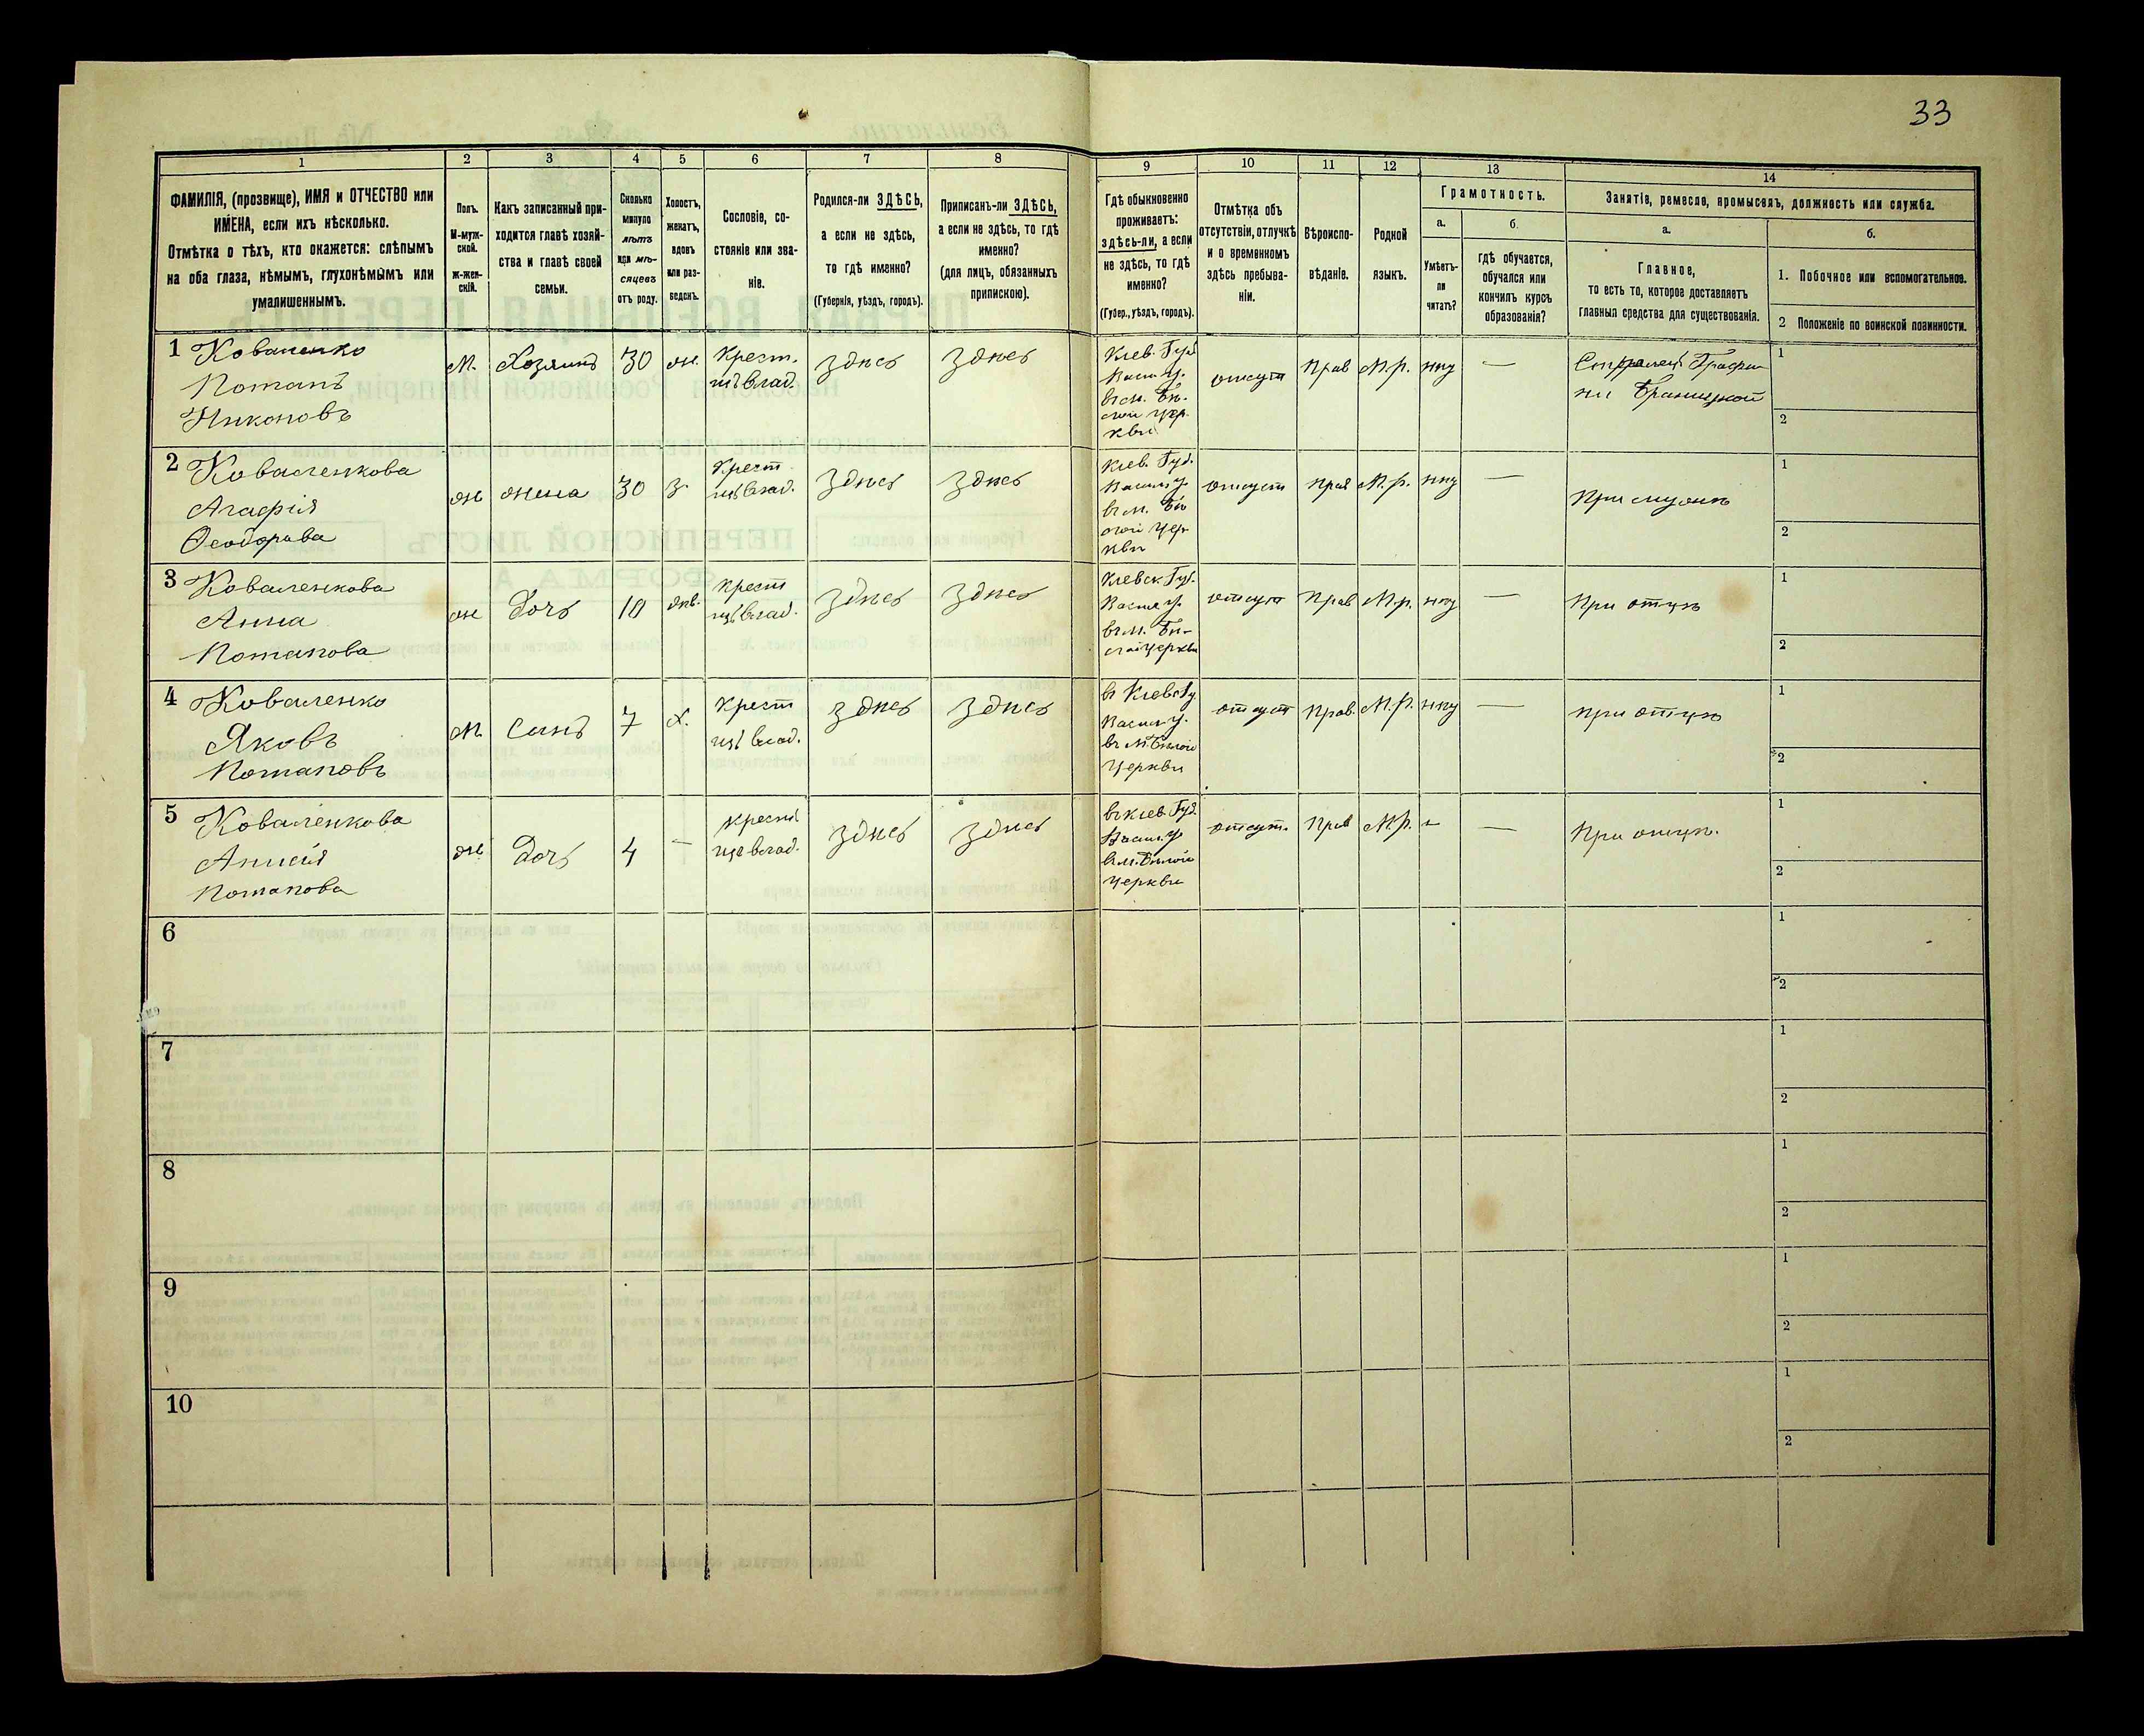 33
1
2
3
4
5
6
7
8
9
10
11
12
13
14
ФАМИЛІЯ, (прозвище), ИМЯ и ОТЧЕСТВО или
ИМЕНА, если ихъ нѣсколько.
Отмѣтка о тѣхъ, кто окажется: слѣпымъ
на оба глаза, нѣмымъ, глухонѣмымъ или
умалишеннымъ.
Полъ.
М-муж-
ской.
Ж-жен-
скій.
Какъ записанный при-
ходится главѣ хозяй-
ства и главѣ своей
семьи.
Сколько
минуло
лѣтъ
или мѣ-
сяцевъ
отъ роду.
Холостъ,
женатъ,
вдовъ
или раз-
веденъ.
Сословіе, со-
стояніе или зва-
ніе.
Родился-ли ЗДѢСЬ,
а если не здѣсь,
то гдѣ именно?
(Губернія, уѣздъ, городъ).
Приписанъ-ли ЗДѢСЬ,
а если не здѣсь, то гдѣ
именно?
(для лицъ, обязанныхъ
припискою).
Гдѣ обыкновенно
проживаетъ:
здѣсь-ли, а если
не здѣсь, то гдѣ
именно?
(Губер., уѣздъ, городъ).
Отмѣтка объ
отсутствіи, отлучкѣ
и о временномъ
здѣсь пребыва-
ніи.
Вѣроиспо-
вѣданіе.
Родной
языкъ.
Грамотность.
а.
Умѣетъ-
ли
читать?
б.
гдѣ обучается,
обучался или
кончилъ курсъ
образованія?
Занятіе, ремесло, промыселъ, должность или служба.
а.
Главное,
то есть то, которое доставляетъ
главныя средства для существованія.
б.
1. Побочное или вспомогательное.
2 Положеніе по воинской повинности.
1 Коваленко
Потапъ
Никоновъ
М.
Хозяинъ
30
ж.
Крест.
изъ влад.
здѣсь
здѣсь
Кіев. Губ
Васил у.
въ м. Бѣ-
лой Цер-
кви
отсут
Прав
М.р.
нѣу
—
Графи
ни Браницкой
1
2
2 Коваленкова
Агафія
Ѳеодорова
ж
жена
30
з.
Крест
изъ влад.
здѣсь
здѣсь
Кіев. Губ.
Васил у.
въ м. Бѣ
лой Цер
кви
отсут
Прав
М.р.
нѣу
—
При мужѣ
1
2
3 Коваленкова
Анна
Потапова
ж
Дочь
10
дѣв.
Крест
изъ влад.
здѣсь
здѣсь
Кіевск. Губ.
Васил у.
въ м. Бѣ-
лой Церкви
отсут
Прав
М.р.
нѣу
—
При отцѣ
1
2
4 Коваленко
Яковъ
Потаповъ
М.
Сынъ
7
х.
Крест
изъ влад.
здѣсь
здѣсь
въ Кіев Гу.
Васил у.
въ м. Бѣлой
Церкви
отсут
Прав.
М.р.
нѣу
—
при отцѣ
1
2
5 Коваленкова
Анисія
Потапова
ж
Дочь
4
—
Крест
изъ влад.
здѣсь
здѣсь
въ Кіев. Губ.
Васил. у
въ м. Бѣлой
Церкви
отсут.
Прав
М.р.
—
При отцѣ.
1
2
6
1
2
7
1
2
8
1
2
9
1
2
10
1
2